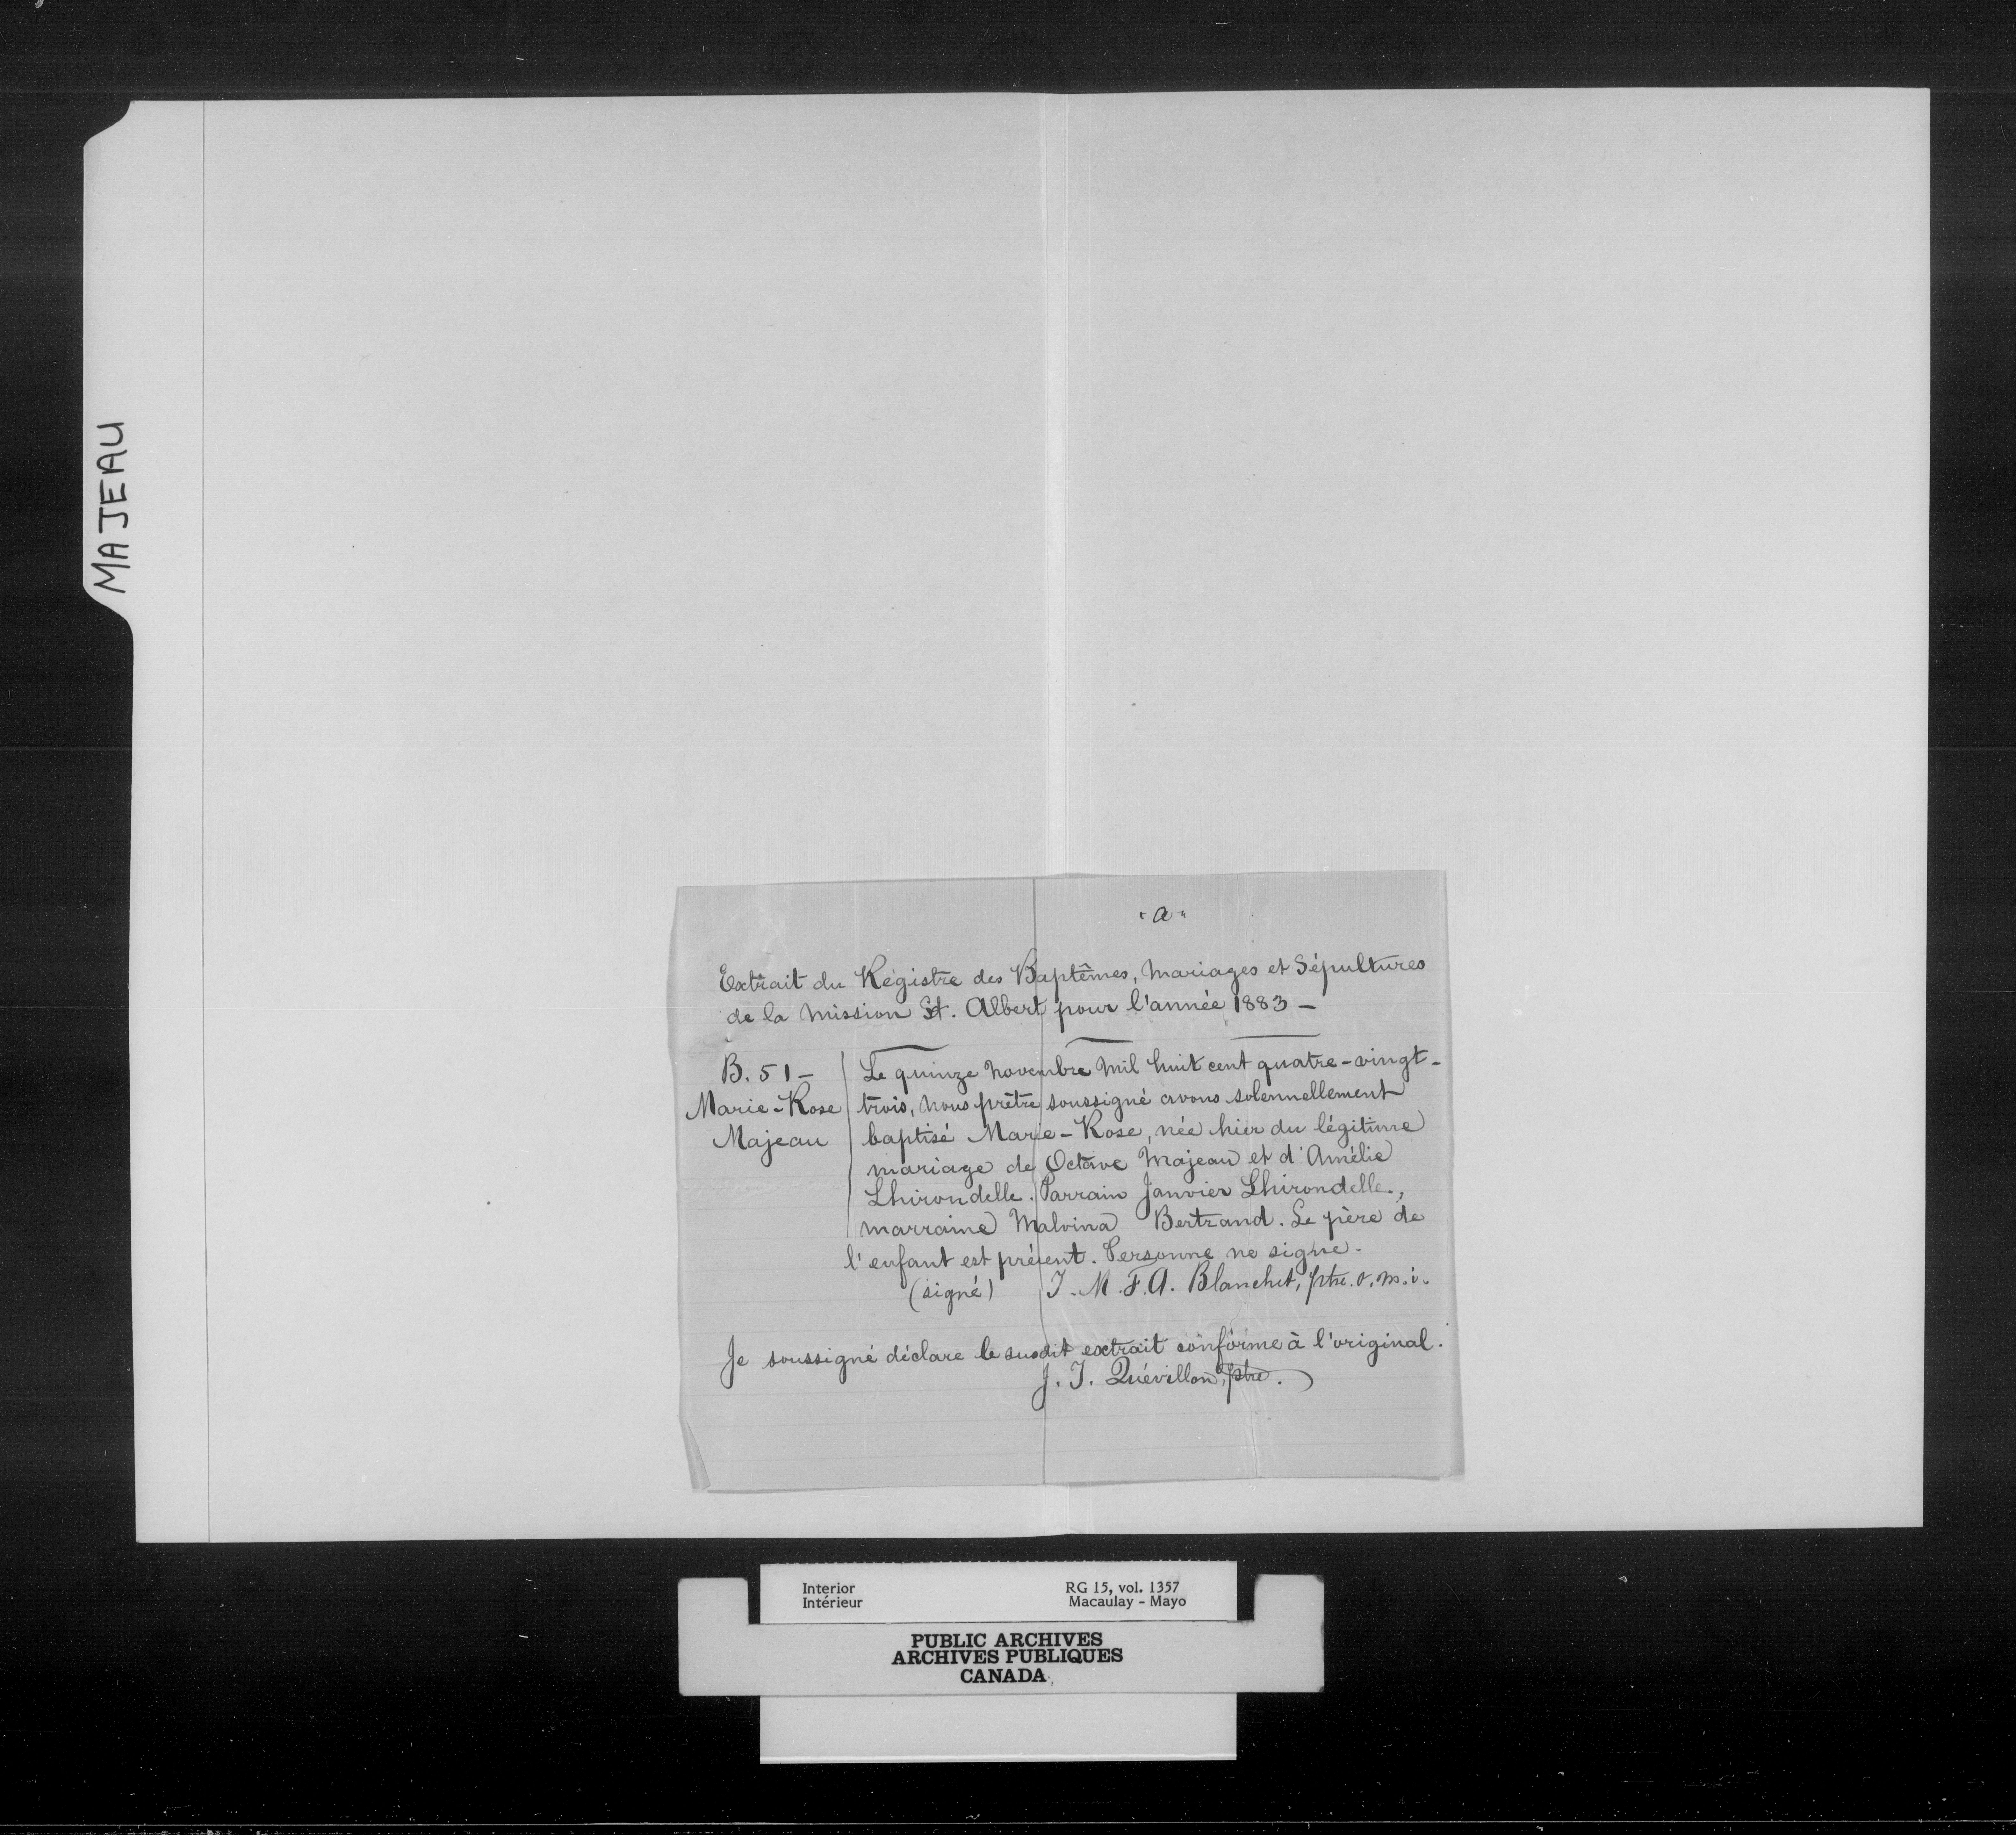 MAJEAU
"a"
Extrait du Régistre des Baptêmes, Mariages et Sépultures
de la Mission St. Albert pour l'année 1883 —
B. 51 —
Marie-Rose
Majeau
Le quinze Novembre Mil huit cent quatre-vingt-
trois, Nous prêtre soussigné avons solennellement
baptisé Marie-Rose, née hier du légitime
mariage de Octave Majeau et d'Amélie
Lhirondelle. Parrain Janvier Lhirondelle,
marraine Malvina Bertrand. Le père de
l'enfant est présent. Personne ne signe.
(signé) J. M. F. A. Blanchet, ptre. o. m. i.
Je soussigné déclare le susdit extrait conforme à l'original.
J. J. Quévillon, ptre.
Interior RG 15, vol. 1357
Intérieur Macaulay - Mayo
PUBLIC ARCHIVES
ARCHIVES PUBLIQUES
CANADA